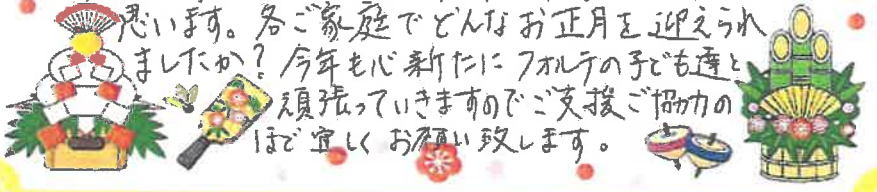 思います。各ご家庭でどんなお正月を迎えられ
ましたか?今年も心新たにフォルテの子ども達と
頑張っていきますのでご支援ご協力の
ほど宜しくお願い致します。